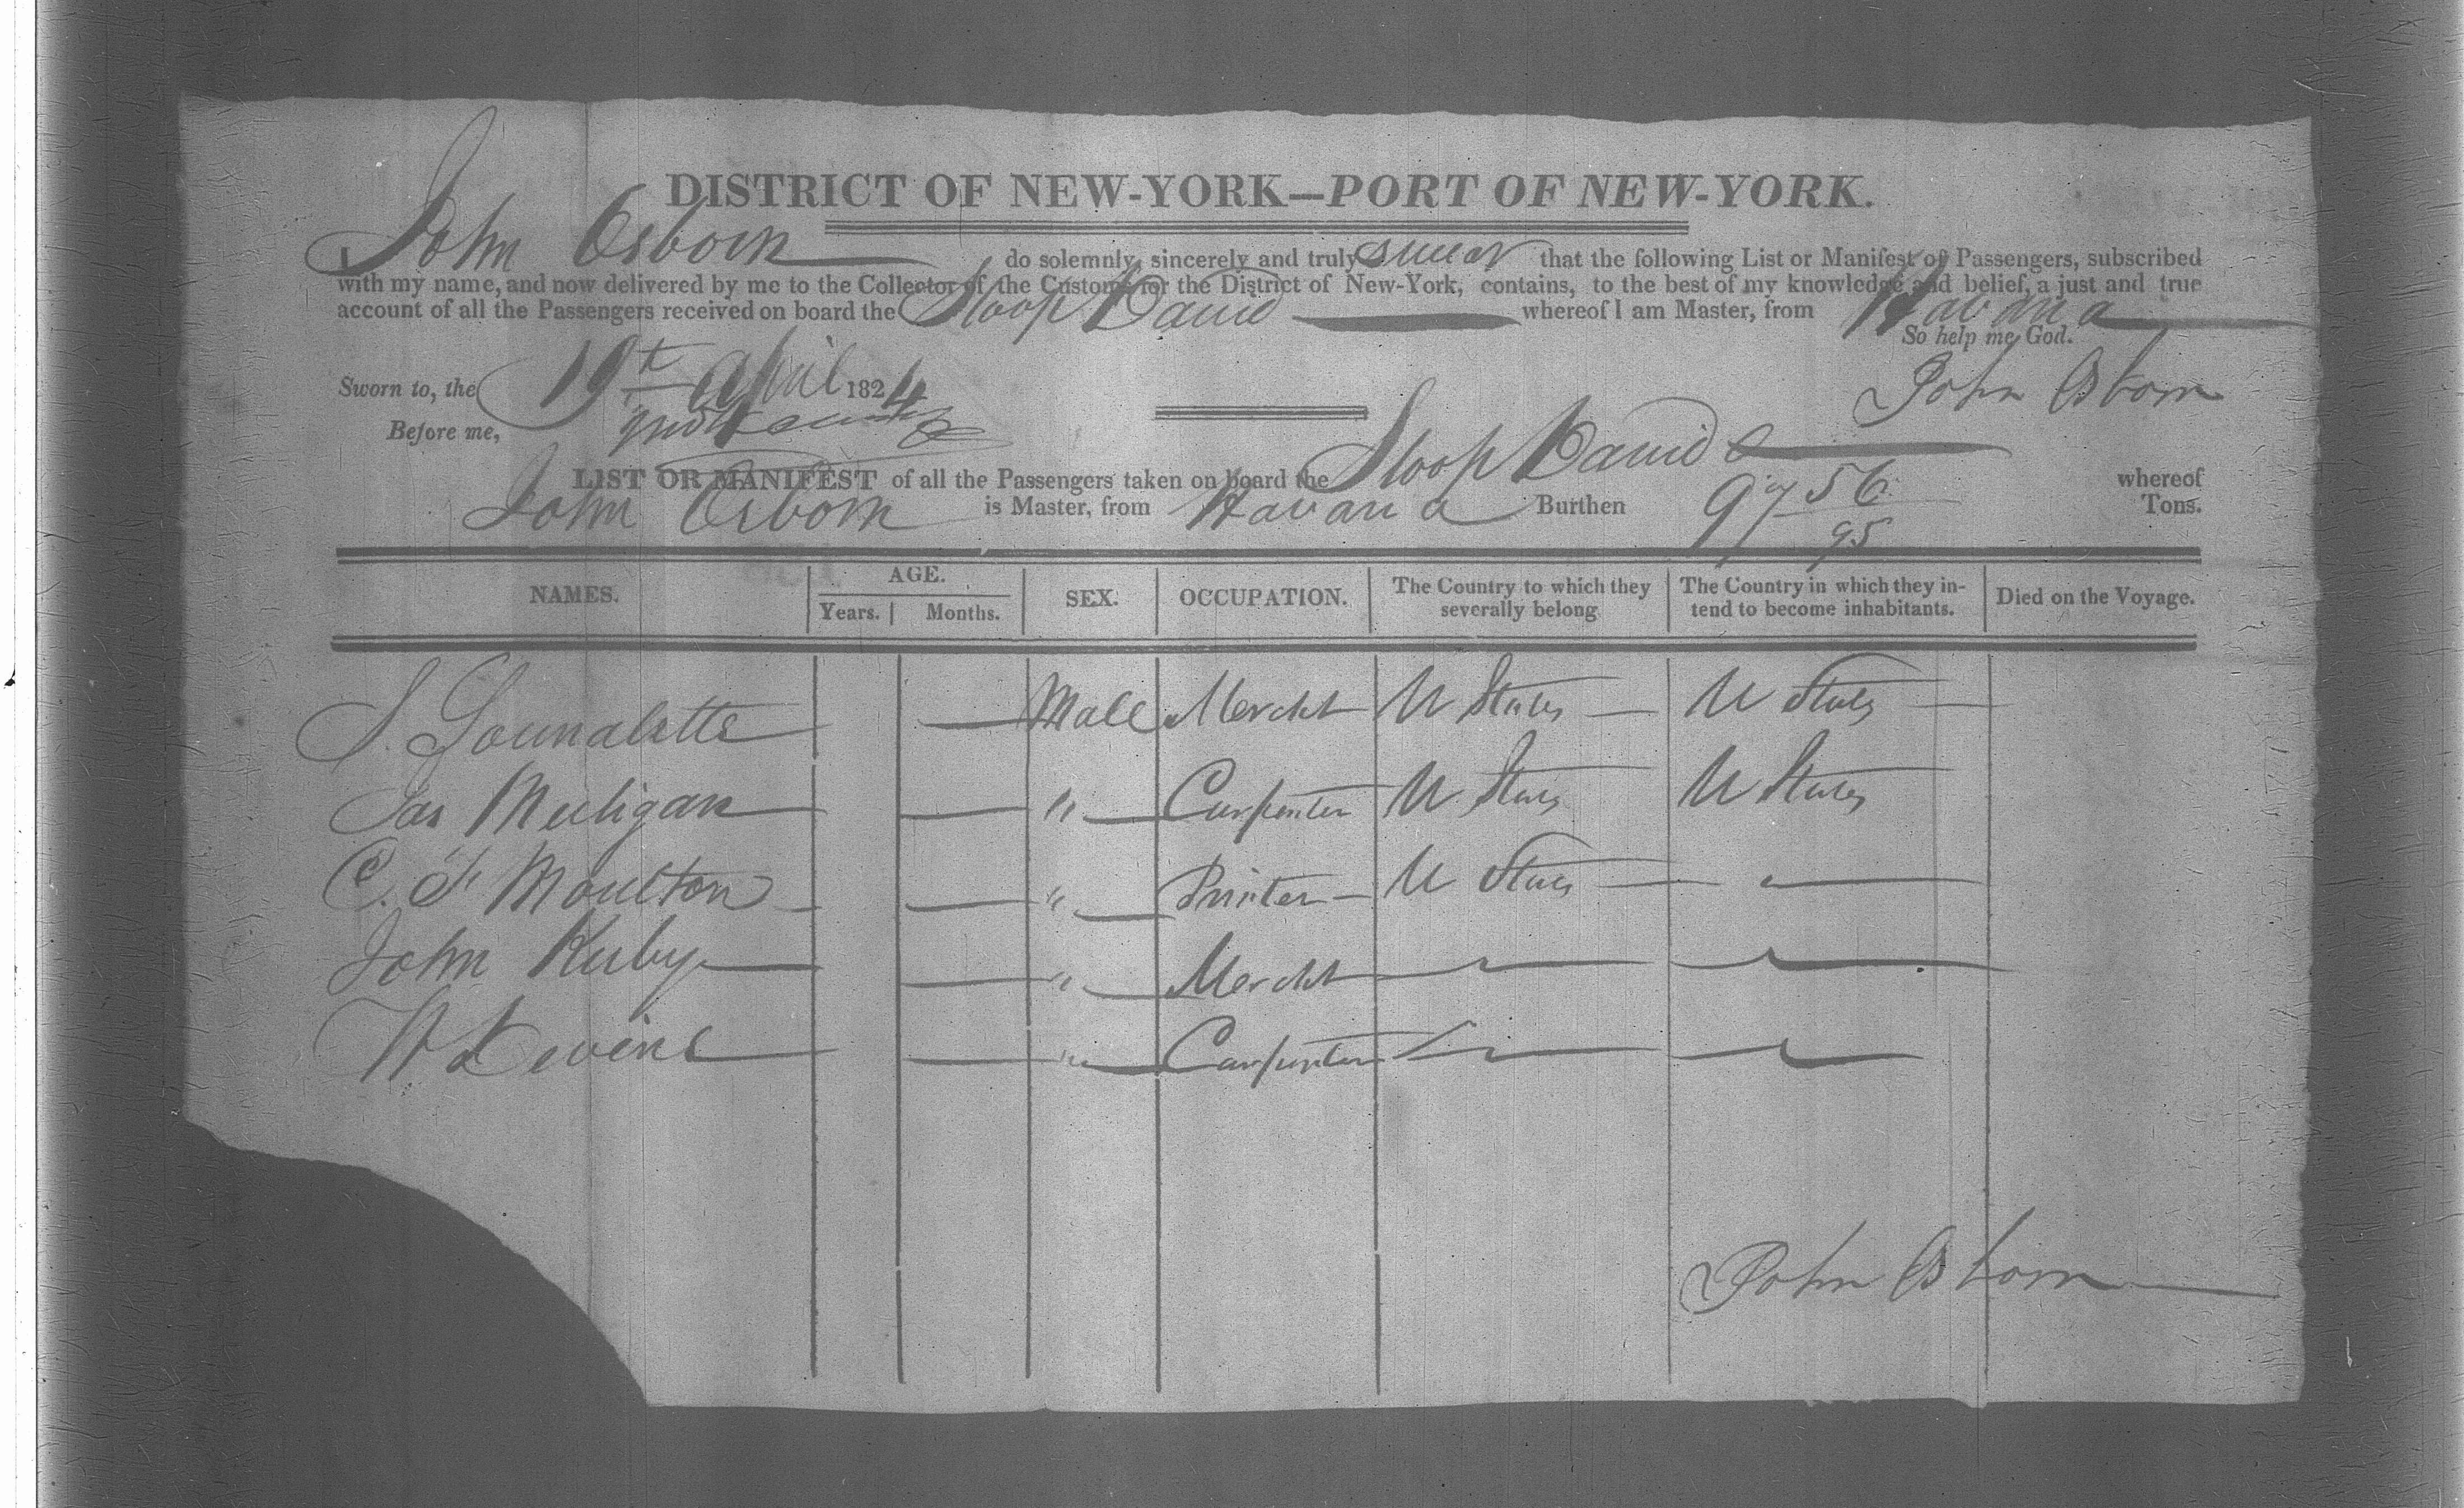 DISTRICT OF NEW-YORK—PORT OF NEW-YORK.
I John Osborn do solemnly, sincerely and truly swear that the following List or Manifest of Passengers, subscribed
with my name, and now delivered by me to the Collector of the Customs for the District of New-York, contains, to the best of my knowledge and belief, a just and true
account of all the Passengers received on board the Sloop David whereof I am Master, from Havana
So help me God.
Sworn to, the 19th April 1824 John Osborn
Before me,
LIST OR MANIFEST of all the Passengers taken on board the Sloop David whereof
John Osborn is Master, from Havana Burthen 97 56/95 Tons.
NAMES. AGE. Years. Months. SEX. OCCUPATION. The Country to which they severally belong The Country in which they intend to become inhabitants. Died on the Voyage.
Male Mercht U States U States
Jas Mulligan — " Carpenter U States U States
C. F Moulton — " Printer U States —
John — " Mercht — —
— " Carpenter — —
John Osborn